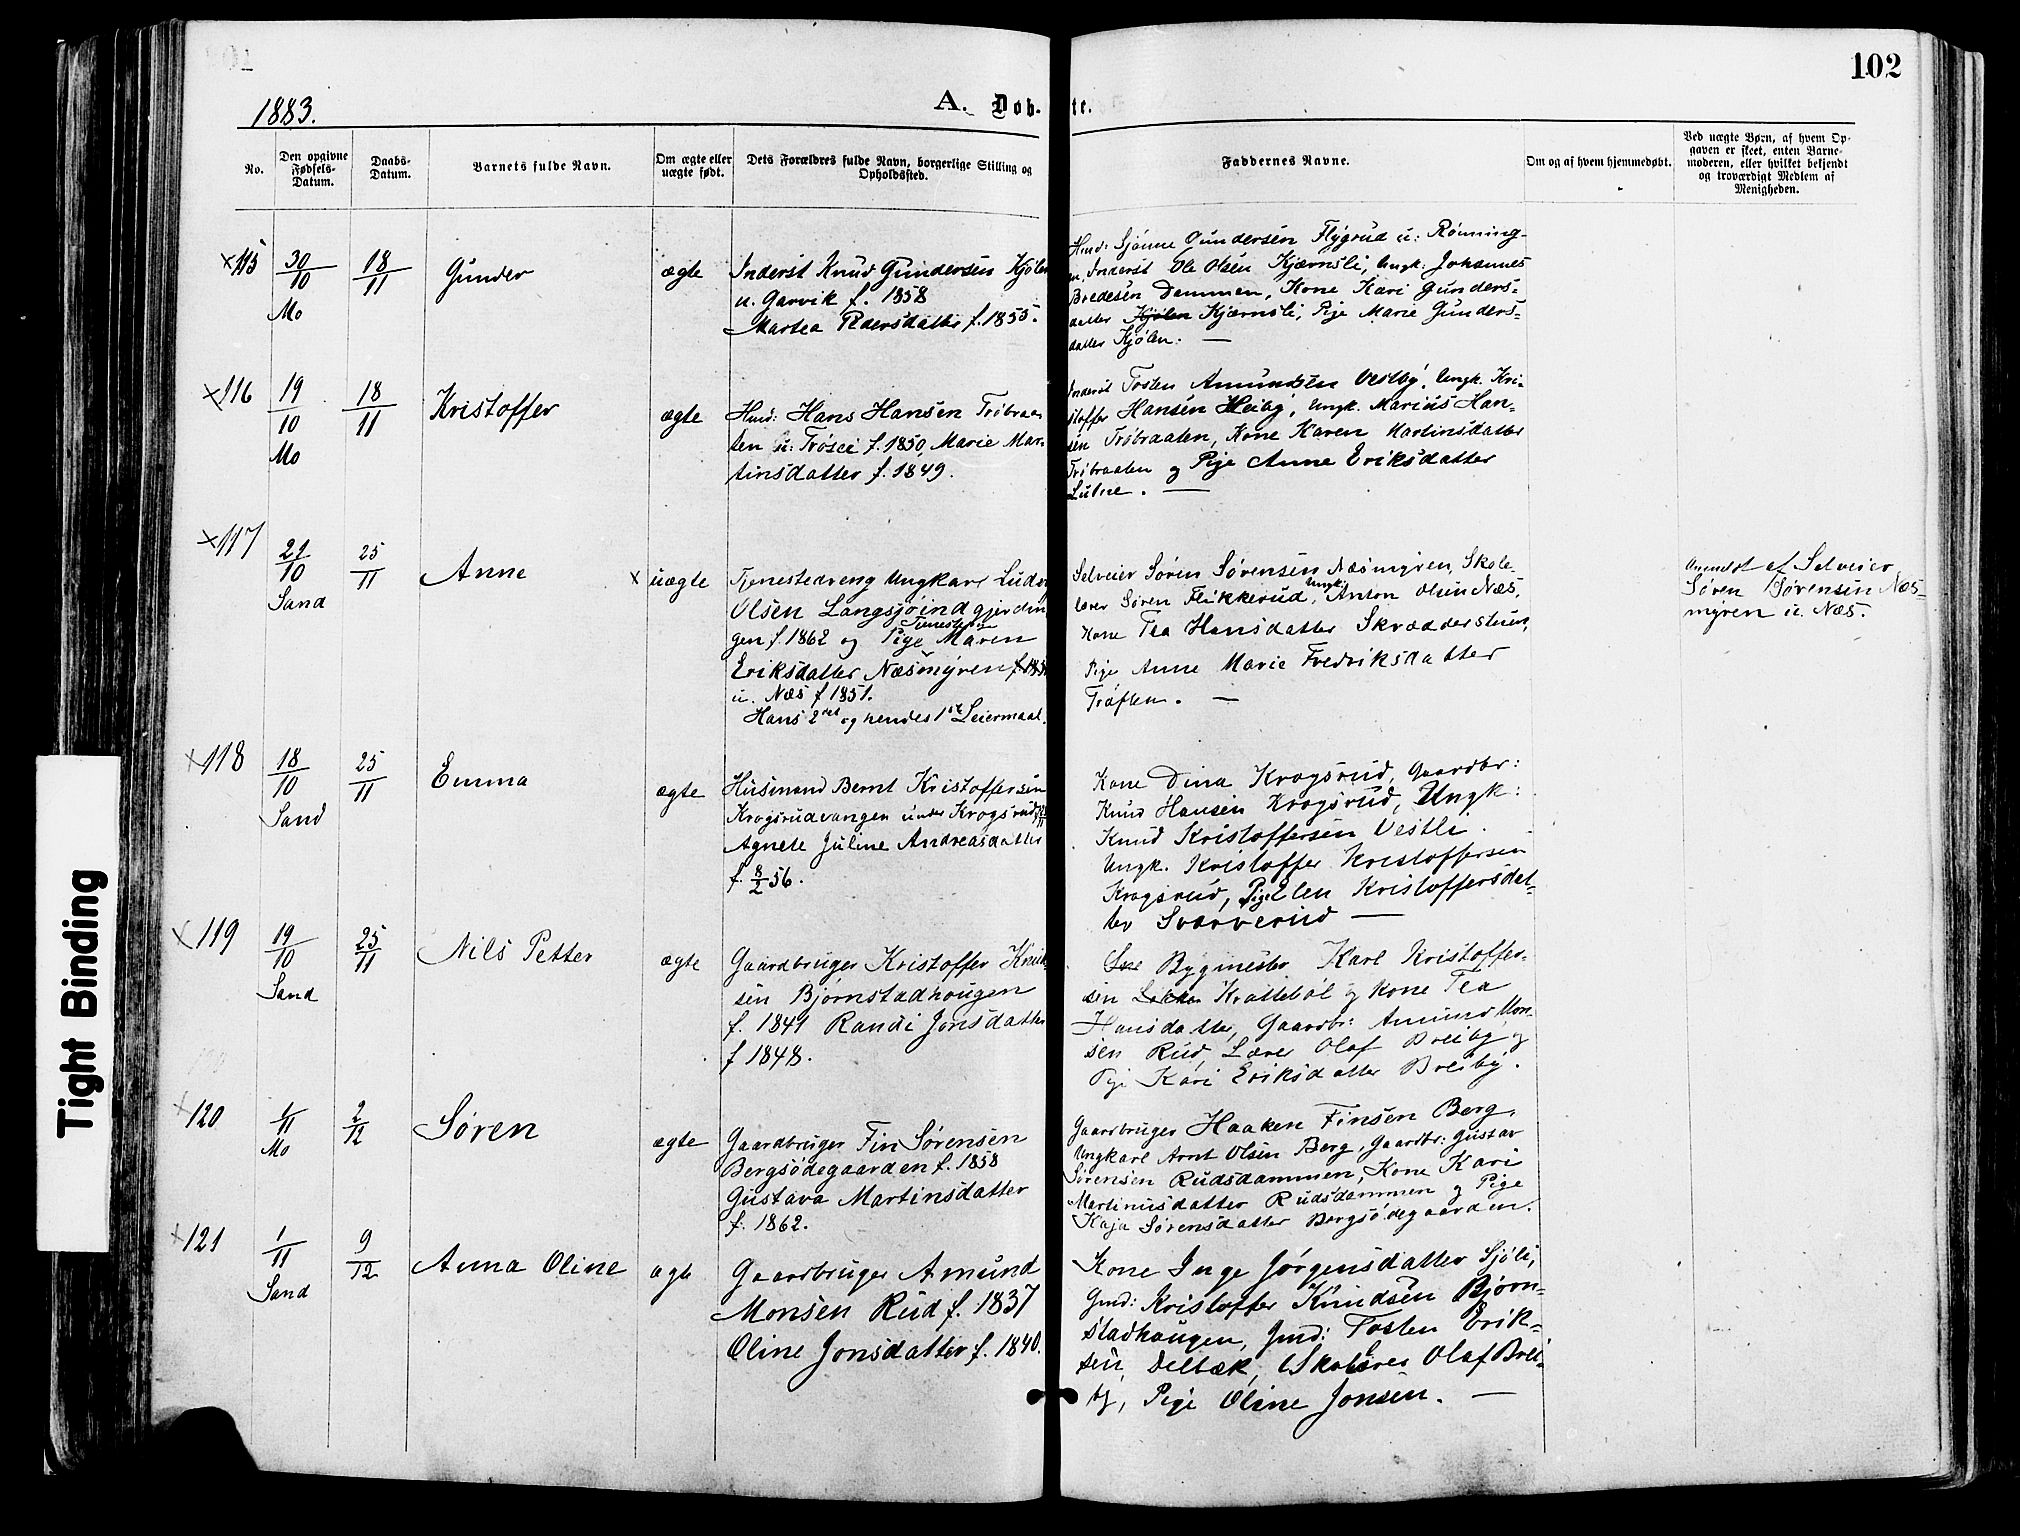 102
1883.
A. Døb-
te.
No.
Den opgivne
Fødsels-
Datum.
Daabs-
Datum.
Barnets fulde Navn.
Om ægte eller
uægte født.
Dets Forældres fulde Navn, borgerlige Stilling og
Opholdssted.
Faddernes Navne.
Om og af hvem hjemmedøbt.
Ved uægte Børn, af hvem Op-
gaven er skeet, enten Barne-
moderen, eller hvilket bekjendt
og troværdigt Medlem af
Menigheden.
×115 30/10 Mo 18/11 Gunder ægte
Inderst Knud Gundersen Kjølen
u. Garvik f. 1858
Martea Pedersdatter f. 1855.
Husm: Sjønne Gundersen Flygrud u: Rønning-
en, Inderst Ole Olsen Kjærnsli, Ungk: Johannes
Bredesen Dammen, Kone Kari Gunders-
datter Kjølen Kjærnsli, Pige Marie Gunders-
datter Kjølen. —
×116 19/10 Mo 18/11 Kristoffer ægte
Husm: Hans Hansen Trøbraa-
ten u: Trøsei f. 1850, Marie Mar-
tinsdatter f. 1849.
Inderst Tosten Amundsen Vestby, Ungk. Kri-
stoffer Hansen Heiby, Ungk. Marius Han-
sen Trøbraaten, Kone Karen Martinsdatter
Trøbraaten og Pige Anne Eriksdatter
Lutne. —
×117 21/10 Sand 25/11 Anne × uægte
Tjenestedreng Ungkarl Ludv
Olsen Langsjøindgjerdin
gen f. 1862 og Tjeneste Pige Maren
Eriksdatter Næsmyren
u. Næs f 1851.
Hans 2det og hendes 1ste Leiermaal.
Selveier Søren Sørensen Næsmyren, Skole-
lærer Søren Flikkerud, Ungk. Anton Olsen Næs,
Kone Tea Hansdatter Skrædderstuen,
Pige Anne Marie Fredriksdatter
Trøften. —
Anmeldt af Selveier
Søren Sørensen Næs-
myren u. Næs.
×118 18/10 Sand 25/11 Emma ægte
Husmand Bernt Kristoffersen
Krogsrudvangen under Krogsrud
Agnete Juline Andreasdatter
f. 8/2 56.
Kone Dina Krogsrud, Gaardbr:
Knud Hansen Krogsrud, Ungk:
Knud Kristoffersen Vestli.
Ungk. Kristoffer Kristoffersen
Krogsrud, Pige Elen Kristoffersdat-
ter Svarverud —
×119 19/10 Sand 25/11 Nils Petter ægte
Gaardbruger Kristoffer Knud-
sen Bjørnstadhougen
f. 1841 Randi Jonsdatter
f 1848.
Bygmester Karl Kristoffer-
sen Løkken Krattebøl og Kone Tea
Hansdatter, Gaardbr: Amund Mon-
sen Rud, Lærer Olaf Breiby og
Pige Kari Eriksdatter Breiby.
×120 1/11 Mo 2/12 Søren ægte
Gaardbruger Fin Sørensen
Bergsødegaarden f. 1858
Gustava Martinsdatter
f. 1862.
Gaardbruger Haaken Finsen Berg,
Ungkarl Arnt Olsen Berg, Gaardbr: Gustav
Sørensen Rudsdammen, Kone Kari
Martinusdatter Rudsdammen og Pige
Kaja Sørensdatter Bergsødegaarden.
×121 1/11 Sand 9/12 Anna Oline ægte
Gaardbruger Amund
Monsen Rud f. 1837
Oline Jonsdatter f. 1840.
Kone Inge Jørgensdatter Sjøli,
Gmd: Kristoffer Knudsen Bjørn-
stadhougen, Gmd: Tosten Erik-
sen, Delbæk, Skolelærer Olaf Brei-
by, Pige Oline Jonsen. —
Tight Binding